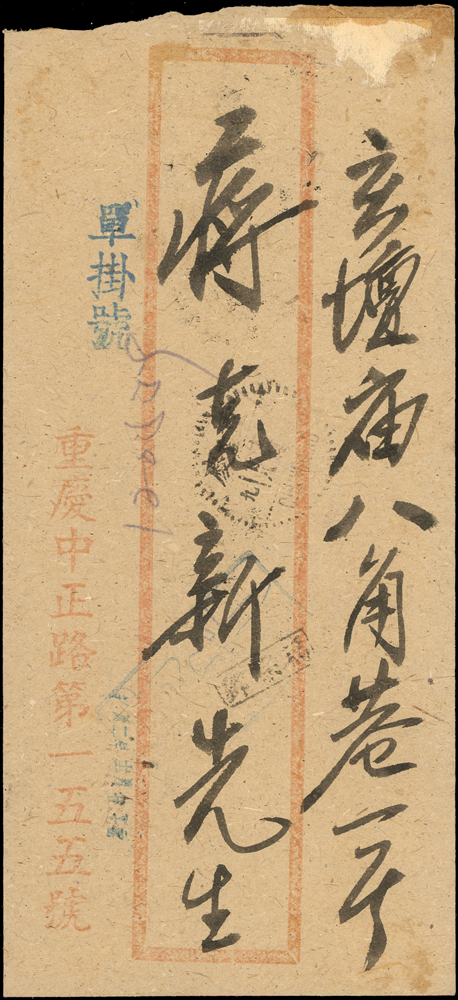 玄壇庙八角巷一号
蔣克新先生
單掛號
重慶中正路第一五五號